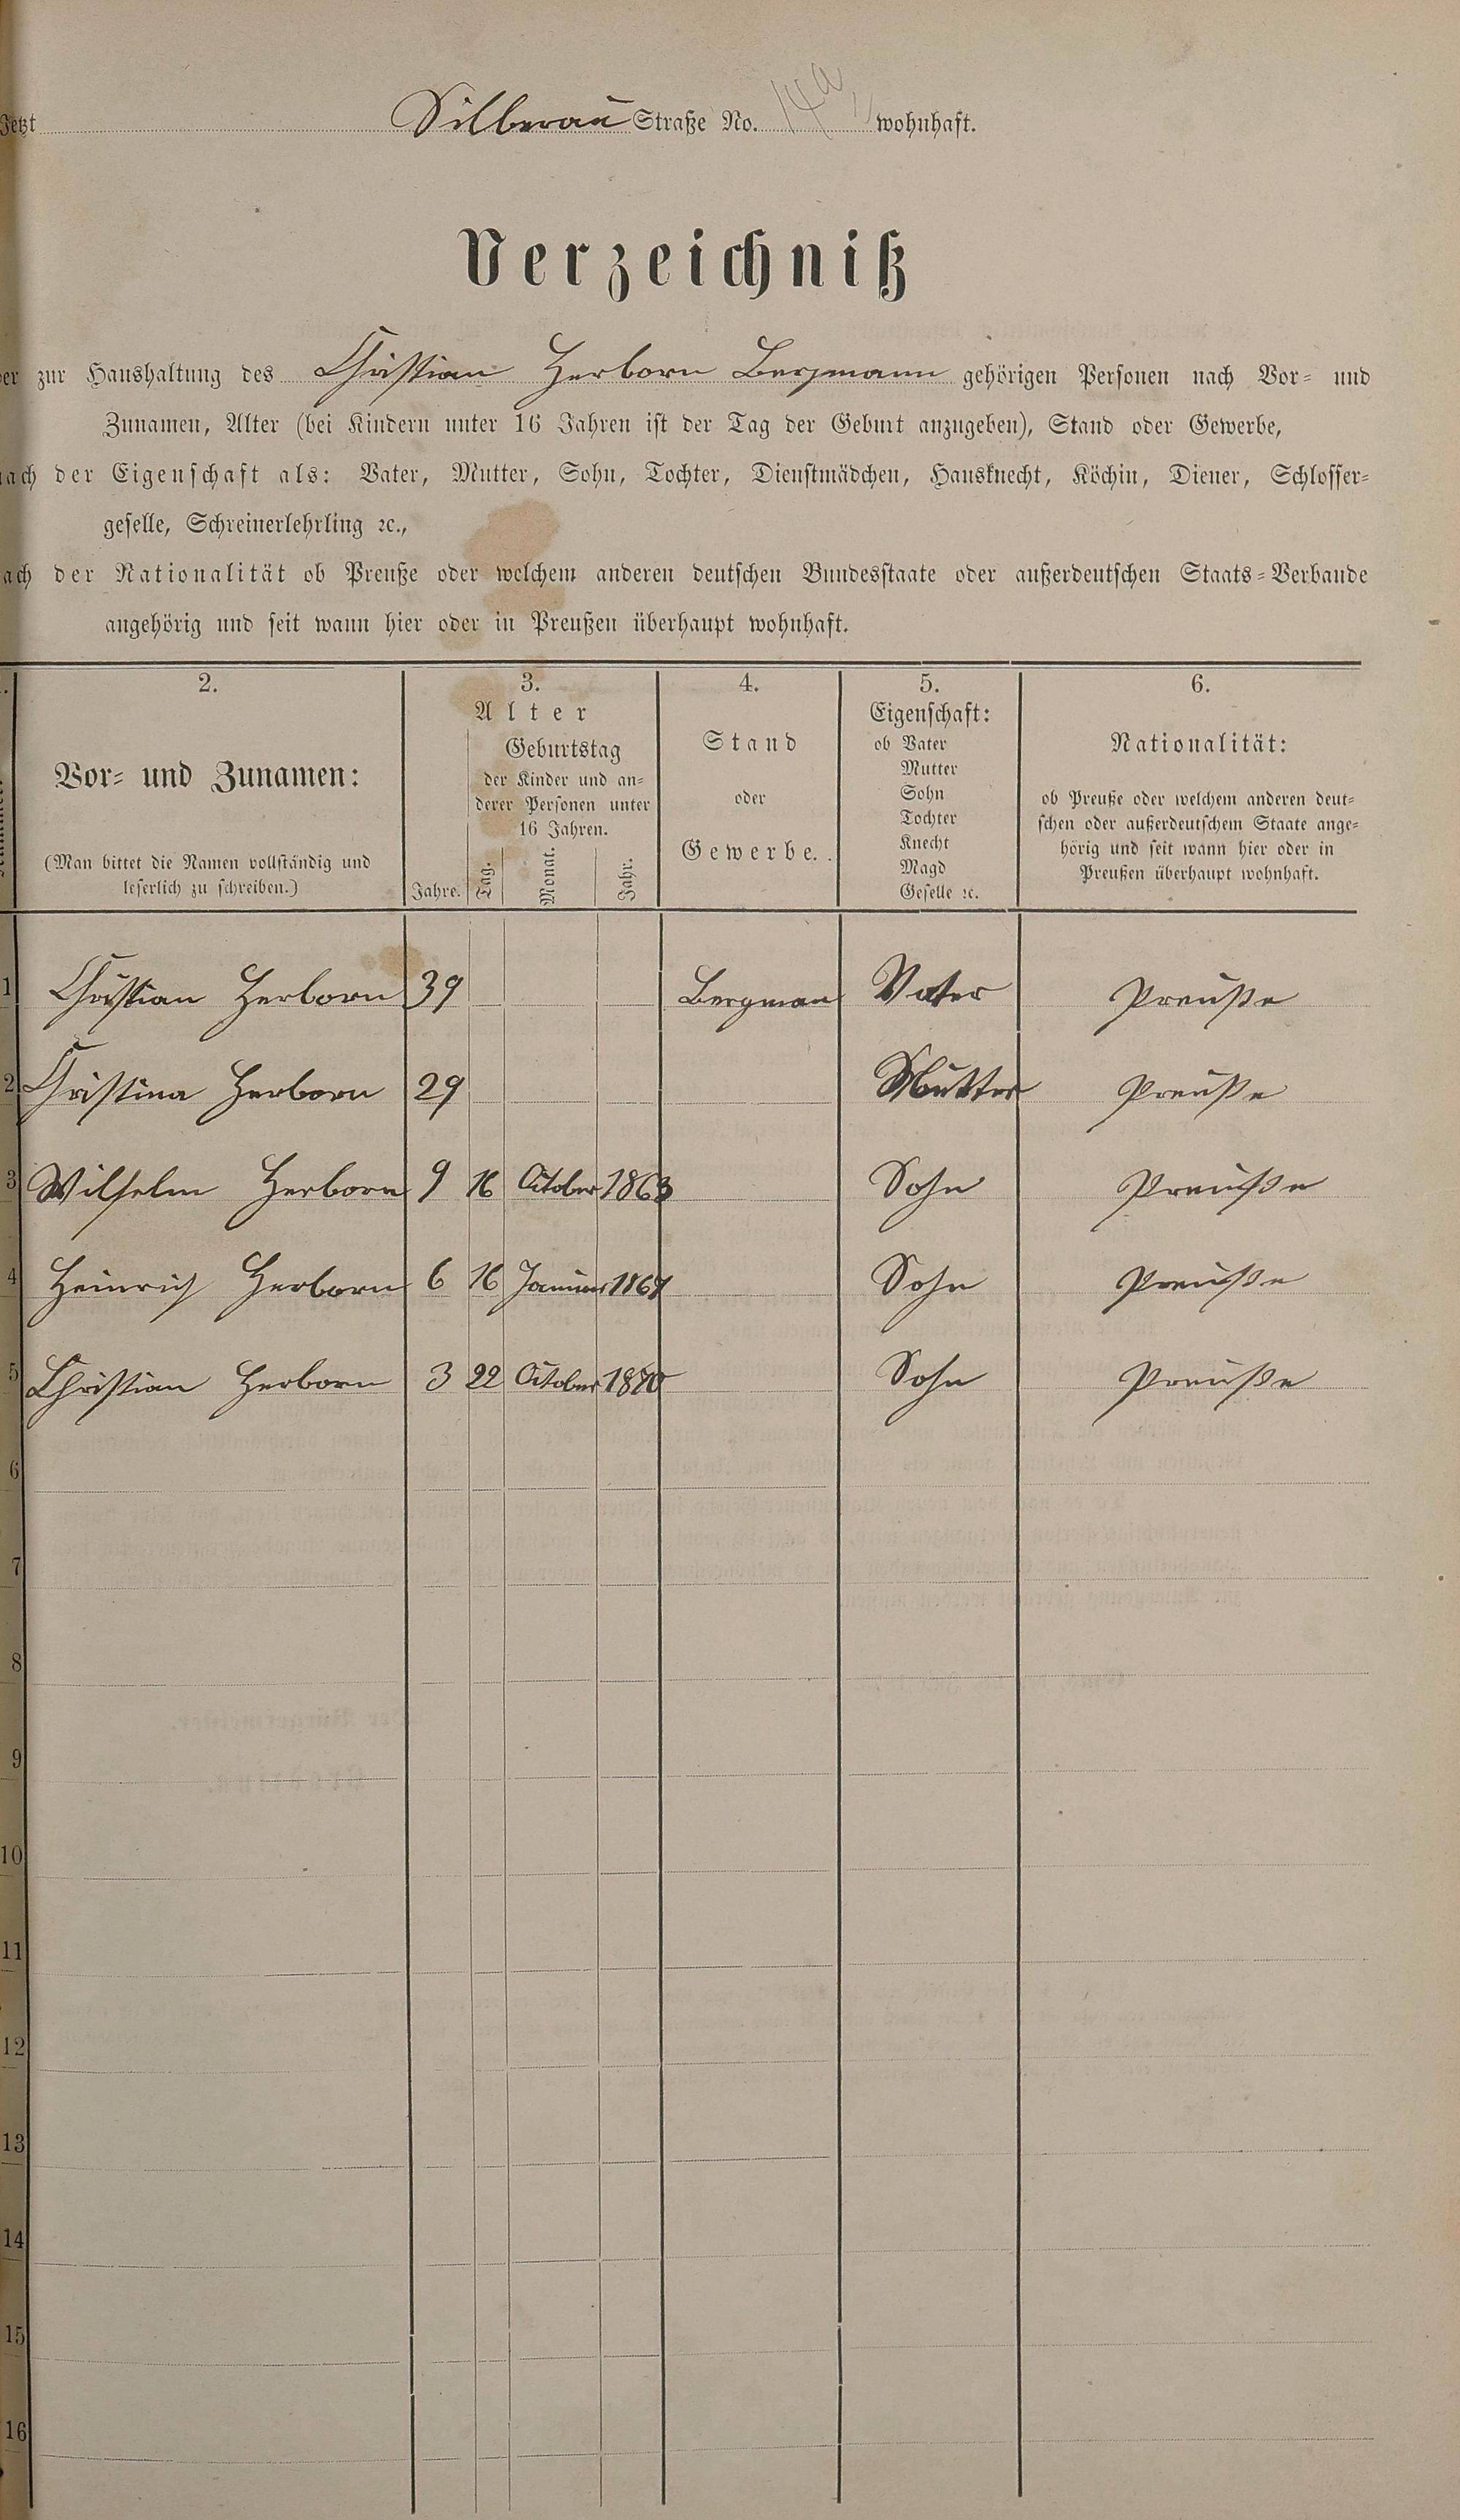 Jetzt Silberau Straße No. 14a wohnhaft.
Verzeichniß
der zur Haushaltung des Christian Herborn Bergmann gehörigen Personen nach Vor- und
Zunamen, Alter (bei Kindern unter 16 Jahren ist der Tag der Geburt anzugeben), Stand oder Gewerbe,
nach der Eigenschaft als: Vater, Mutter, Sohn, Tochter, Dienstmädchen, Hausknecht, Köchin, Diener, Schlosser-
geselle, Schreinerlehrling ꝛc.,
nach der Nationalität ob Preuße oder welchem anderen deutschen Bundesstaate oder außerdeutschen Staats-Verbande
angehörig und seit wann hier oder in Preußen überhaupt wohnhaft.
2. 3. 4. 5. 6.
Vor- und Zunamen:
(Man bittet die Namen vollständig und
leserlich zu schreiben.)
Alter
Geburtstag
der Kinder und an-
derer Personen unter
16 Jahren.
Jahre. Tag. Monat. Jahr.
Stand
oder
Gewerbe.
Eigenschaft:
ob Vater
Mutter
Sohn
Tochter
Knecht
Magd
Geselle ꝛc.
Nationalität:
ob Preuße oder welchem anderen deut-
schen oder außerdeutschem Staate ange-
hörig und seit wann hier oder in
Preußen überhaupt wohnhaft.
1 Christian Herborn 39 Bergman Vater Preuße
2 Christina Herborn 29 Mutter Preuße
3 Wilhelm Herborn 9 16 October 1863 Sohn Preuße
4 Heinrich Herborn 6 16 1867 Sohn Preuße
5 Christian Herborn 3 22 October 1870 Sohn Preuße
6
7
8
9
10
11
12
13
14
15
16